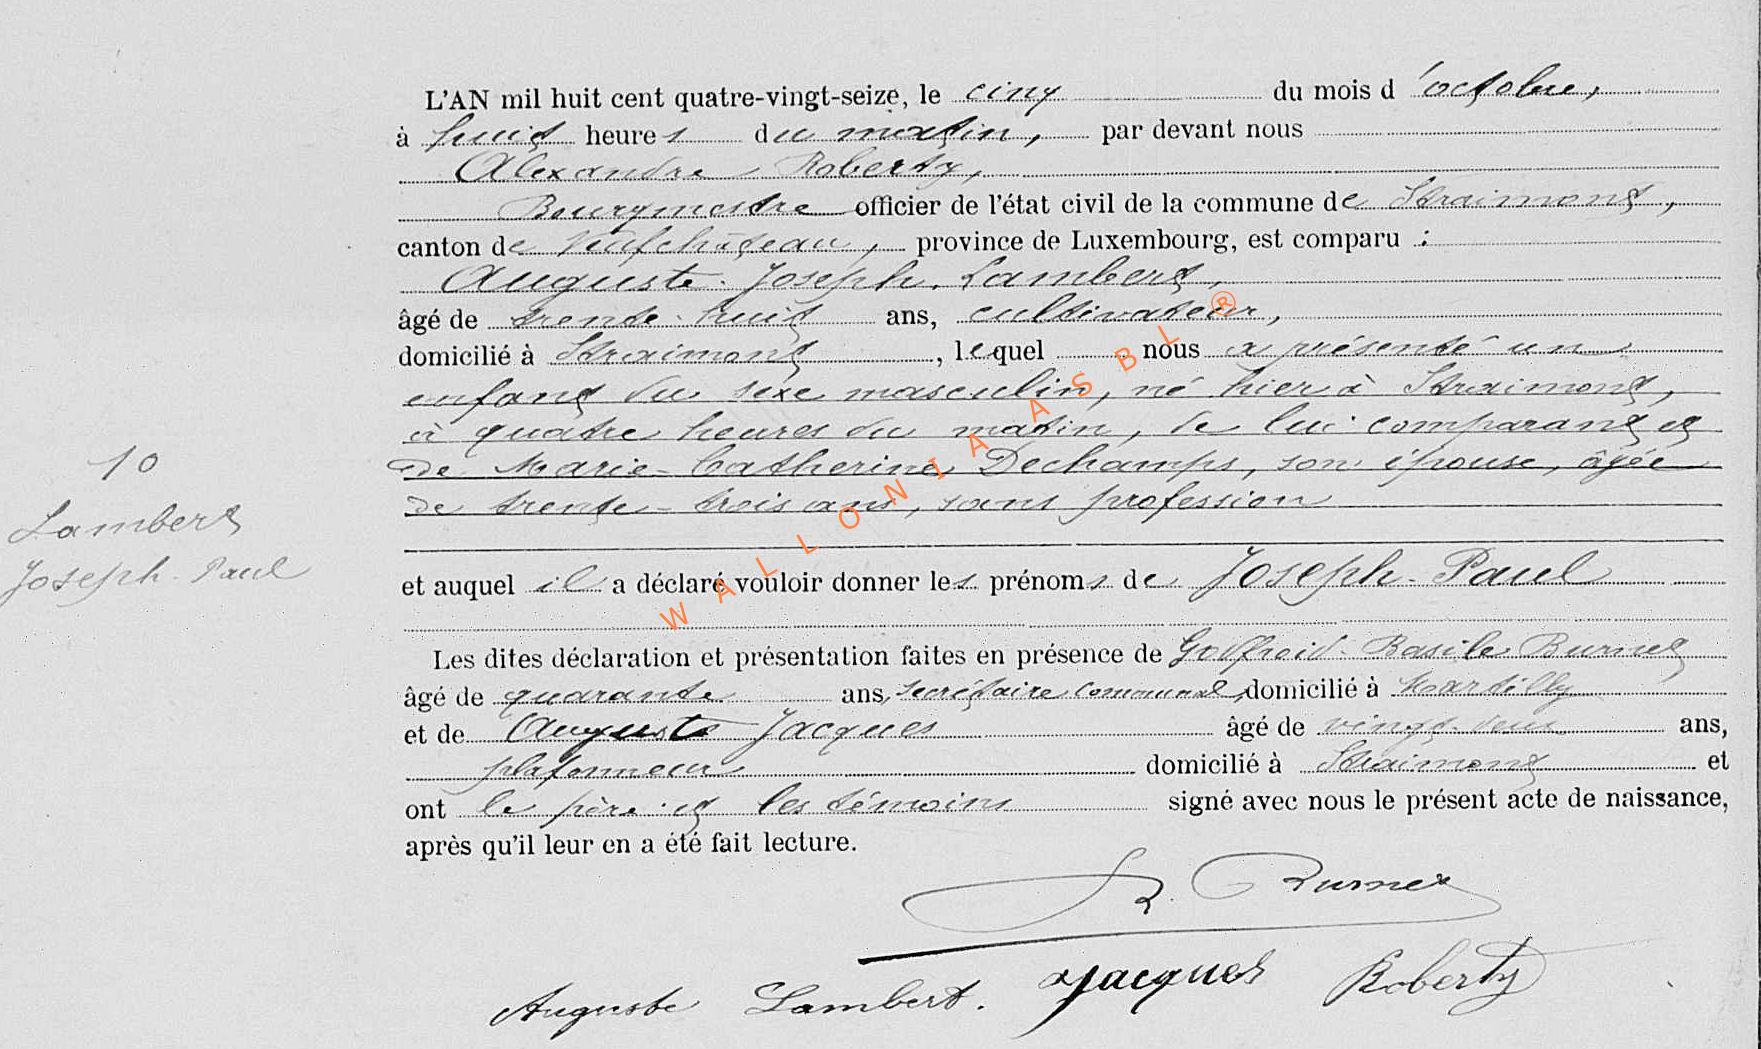 L'AN mil huit cent quatre-vingt-seize, le cinq du mois d'octobre,
à huit heures du matin, par devant nous
Alexandre Roberty,
Bourgmestre officier de l'état civil de la commune de Straimont,
canton de Neufchâteau, province de Luxembourg, est comparu :
Auguste-Joseph Lambert,
âgé de trente-huit ans, cultivateur,
domicilié à Straimont, lequel nous a présenté un
enfant du sexe masculin, né hier à Straimont,
à quatre heures du matin, de lui comparant et
de Marie-Catherine Dechamps, son épouse, âgée
de trente-trois ans, sans profession
10
Lambert
Joseph-Paul
et auquel il a déclaré vouloir donner les prénoms de Joseph-Paul
Les dites déclaration et présentation faites en présence de Godfroid-Basile Burnet
âgé de quarante ans, secrétaire communal, domicilié à Martilly
et de Auguste Jacques âgé de vingt-deux ans,
plafonneur domicilié à Straimont et
ont le père et les témoins signé avec nous le présent acte de naissance,
après qu'il leur en a été fait lecture.
B. Burnet
Auguste Lambert. A Jacques Roberty
WALLONIA ASBL ®